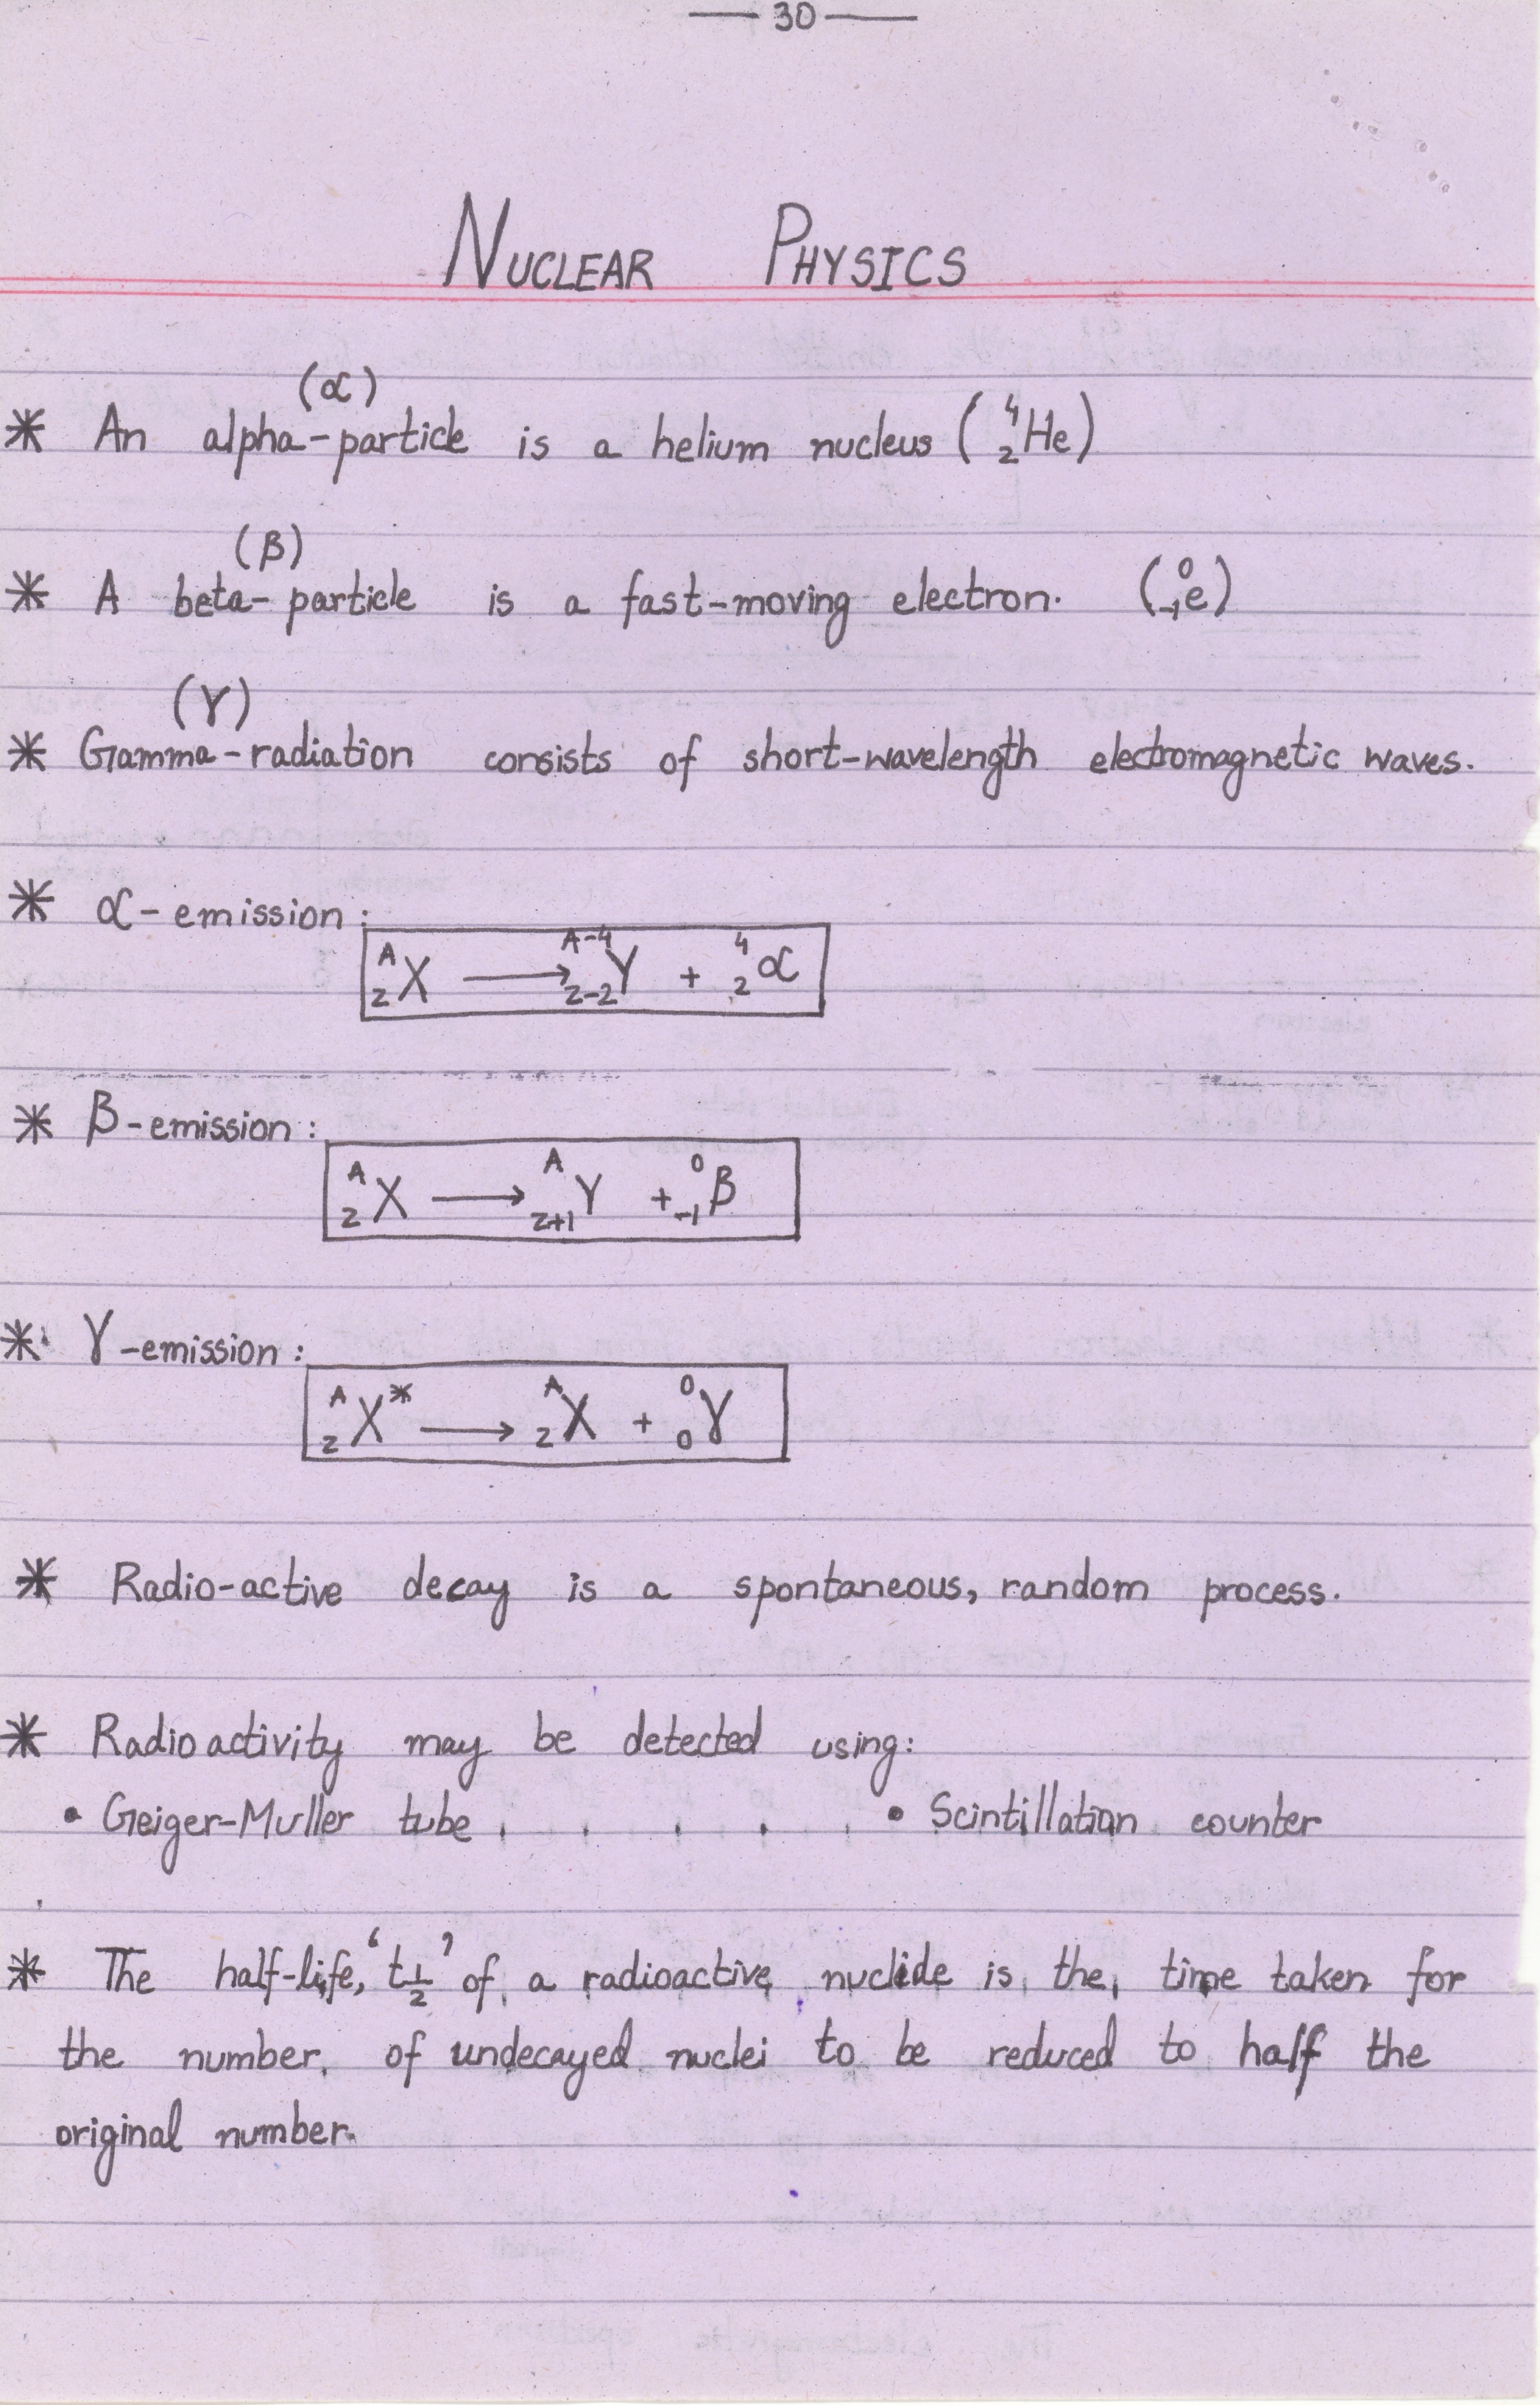 — 30 —
NUCLEAR PHYSICS
(α)
* An alpha-particle is a helium nucleus (⁴₂He)
(β)
* A beta-particle is a fast-moving electron. (⁰₋₁e)
(γ)
* Gamma-radiation consists of short-wavelength electromagnetic waves.
* α-emission:
ᴬ_Z X ⟶ ᴬ⁻⁴_Z-2 Y + ⁴₂α
* β-emission:
ᴬ_Z X ⟶ ᴬ_Z+1 Y + ⁰₋₁β
* γ-emission:
ᴬ_Z X* ⟶ ᴬ_Z X + ⁰₀γ
* Radio-active decay is a spontaneous, random process.
* Radioactivity may be detected using:
• Geiger-Muller tube • Scintillation counter
* The half-life, ‘t½’ of a radioactive nuclide is the time taken for
the number of undecayed nuclei to be reduced to half the
original number.